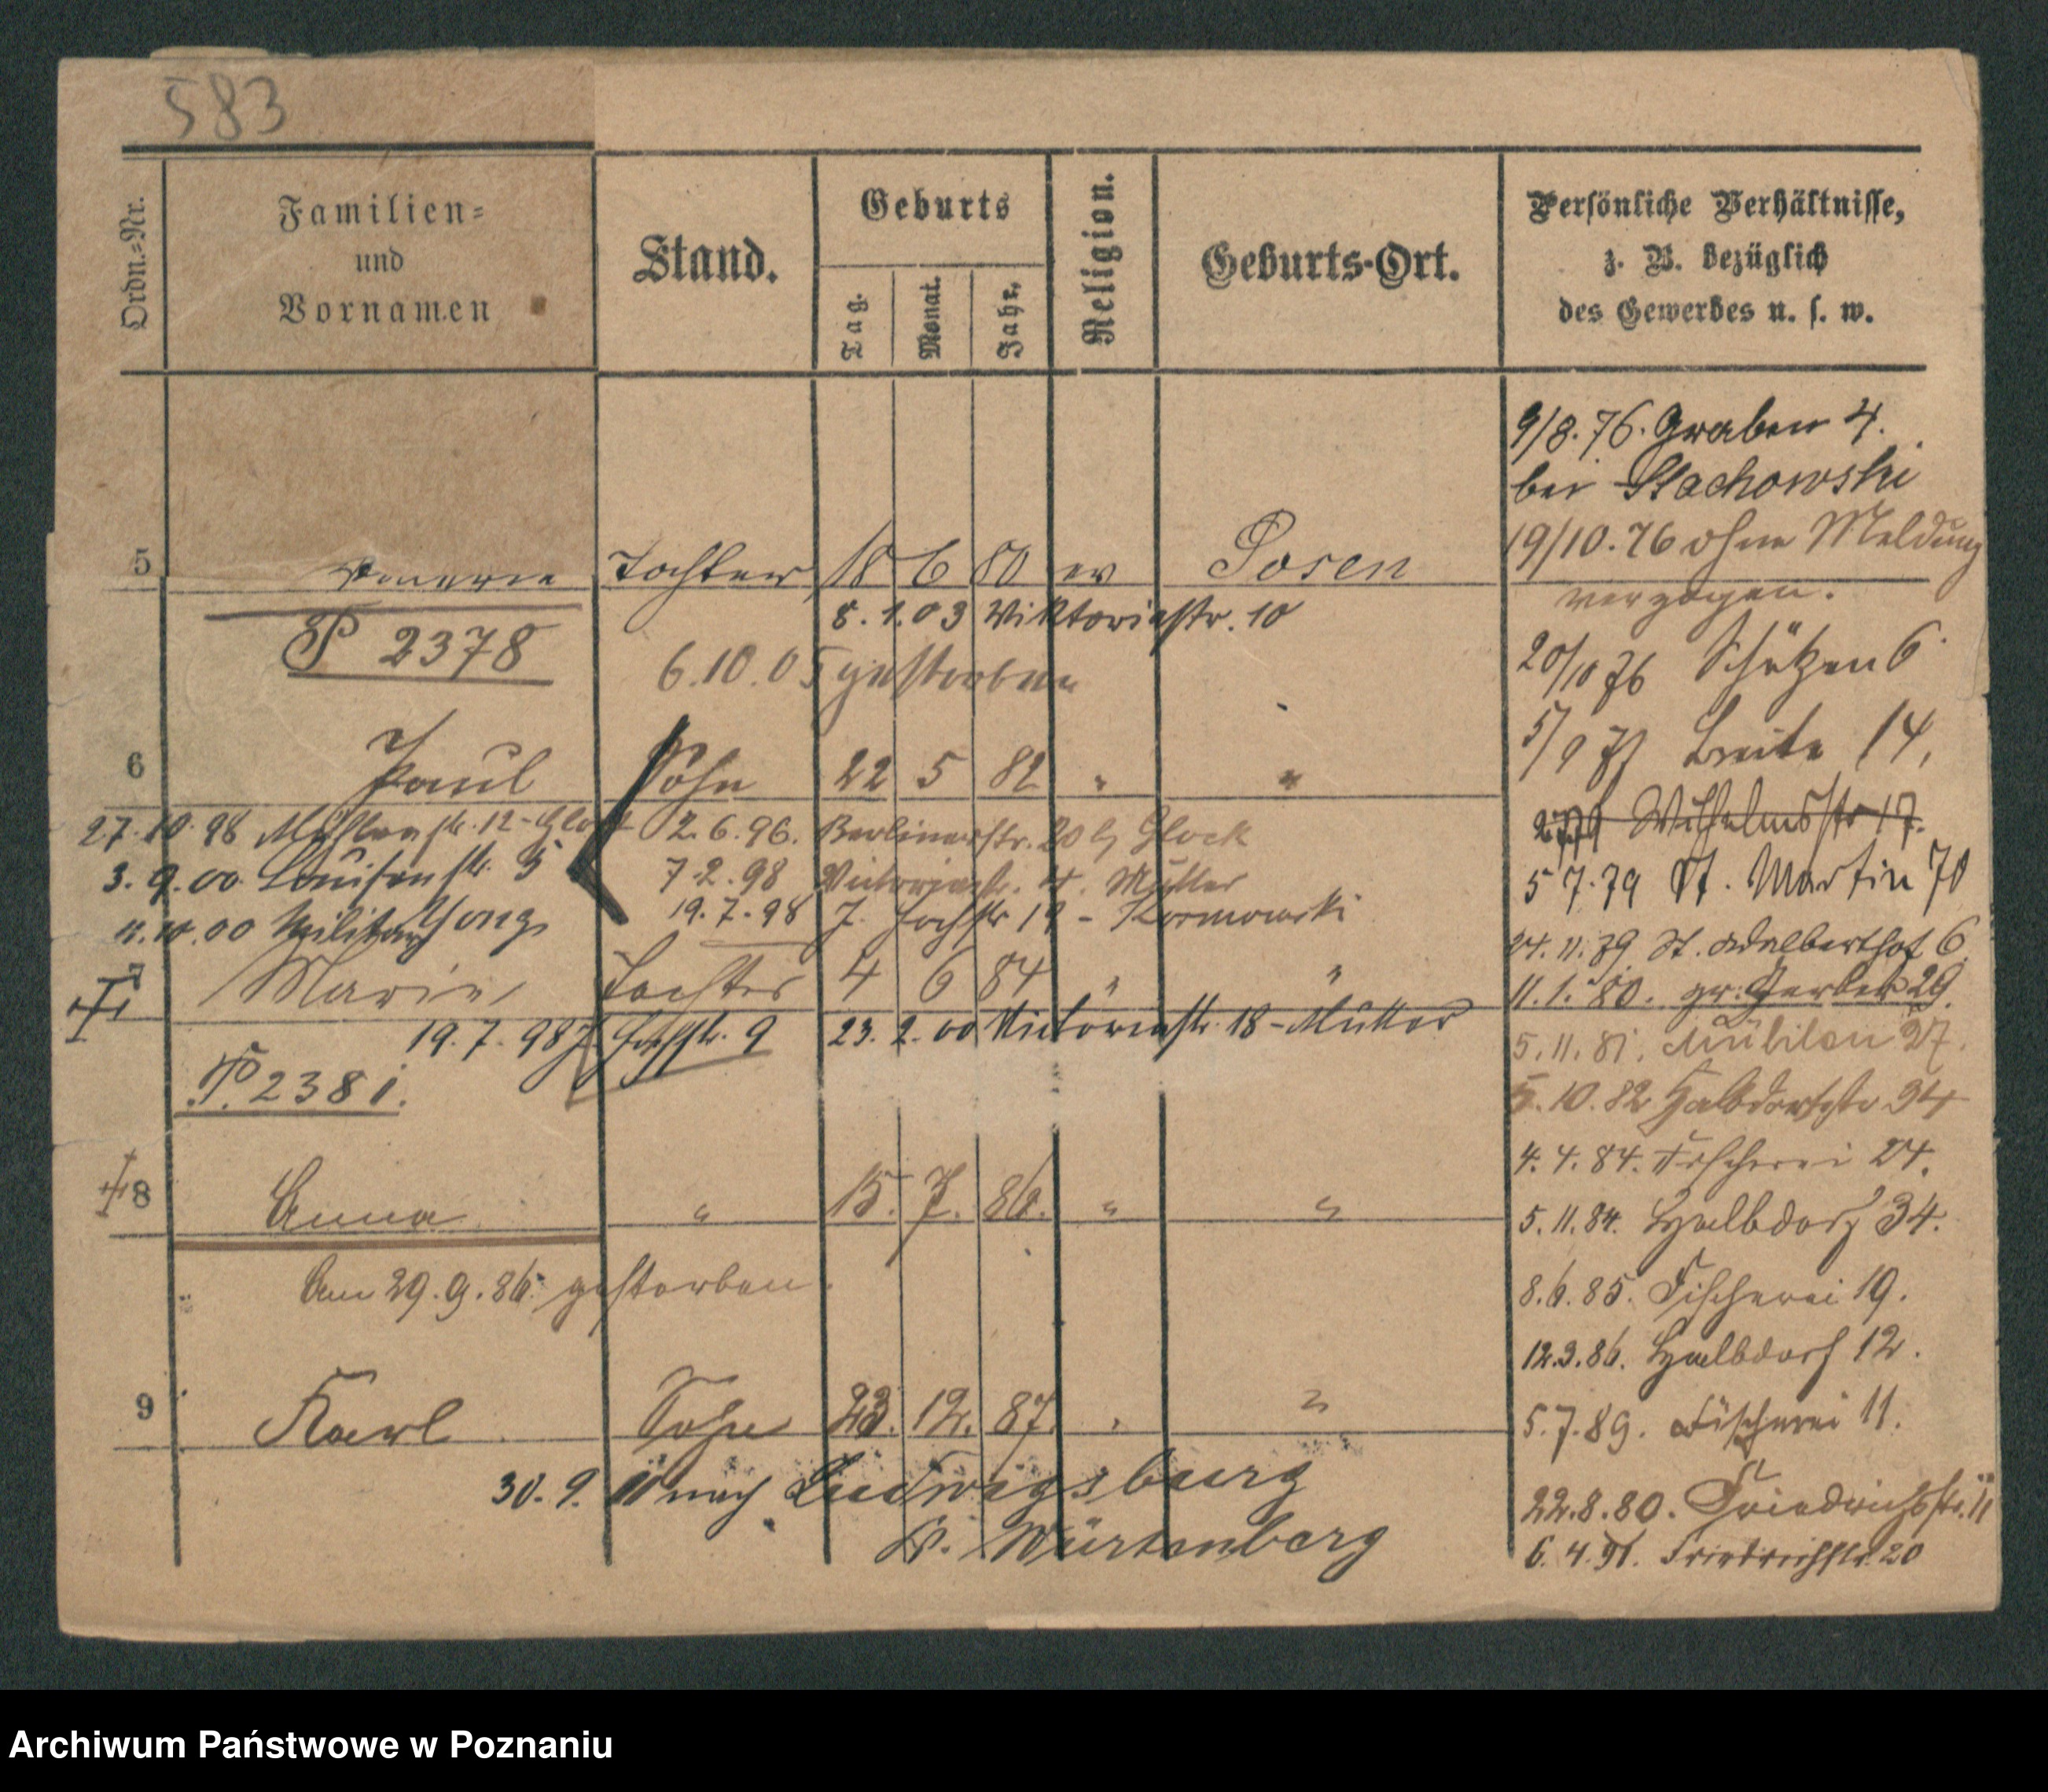 583
Ordn.=Nr.
Familien=
und
Vornamen
Stand.
Geburts
Tag.
Monat.
Jahr.
Religion.
Geburts-Ort.
Persönliche Verhältnisse,
z. B. bezüglich
des Gewerbes u. s. w.
5 Tochter 18 6 80 ev Posen
8.1.03 Viktoriastr. 10
P 2378
6.10.05 gestorben
6 Paul Sohn 22 5 82 " "
27.10.98 Mühlenstr. 12 -
2.6.96. Berlinerstr. 20 b/ Glock
3.9.00 Louisenstr. 5
7.2.98 Victoriastr. Mutter
19.7.98
00 Militär
7 Marie Tochter 4 6 84 " "
19.7.98 9
23.2.00 Victoriastr. 18 - Mutter
P. 2381.
8 Anna " 15. 7. 86. " "
Am 29.9.86 gestorben.
9 Karl Sohn 23. 12. 87. " "
30.9.11 nach Ludwigsburg
Würtemberg
9/8.76. Graben 4.
bei Stachowski
19/10.76 ohne Meldung
verzogen.
20/10 76 Schützen 6
Breite 14,
79 Wilhelmsstr 17.
5 7.79 St. Martin 70
24.11.79 St. Adalberthof 6.
11.1.80. gr. Gerber 29.
5.11.81. Mühlen 27.
5.10.82 Halbdorfstr 34
4.4.84. Fischerei 24.
5.11.84. Halbdorf 34.
8.6.85. Fischerei 19.
12.3.86. Halbdorf 12.
5.7.89. Fischerei 11.
22.8.80. Friedrichsstr. 11
6.4.91. Friedrichstr. 20
Archiwum Państwowe w Poznaniu